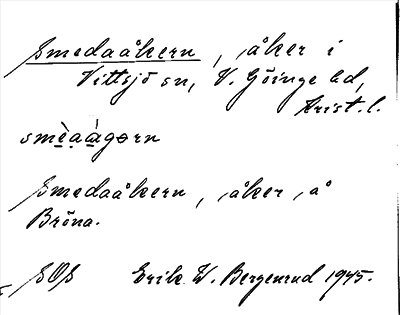 Smedaåkern, åker i
Vittsjö sn, V. Göinge hd,
Krist. l.
smèaágorn
Smedaåkern, åker, å
Bröna.
SOS Erik W. Bergenrud 1945.